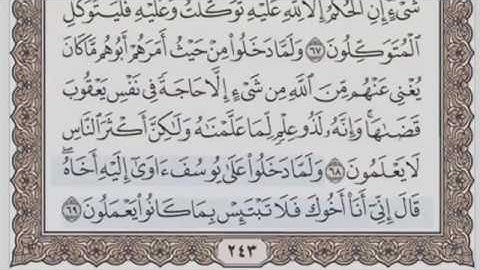 شَىْءٍ إِنِ ٱلْحُكْمُ إِلَّا لِلَّهِ عَلَيْهِ تَوَكَّلْتُ وَعَلَيْهِ فَلْيَتَوَكَّلِ
ٱلْمُتَوَكِّلُونَ ٦٧ وَلَمَّا دَخَلُوا۟ مِنْ حَيْثُ أَمَرَهُمْ أَبُوهُم مَّا كَانَ
يُغْنِى عَنْهُم مِّنَ ٱللَّهِ مِن شَىْءٍ إِلَّا حَاجَةً فِى نَفْسِ يَعْقُوبَ
قَضَىٰهَا ۚ وَإِنَّهُۥ لَذُو عِلْمٍ لِّمَا عَلَّمْنَٰهُ وَلَٰكِنَّ أَكْثَرَ ٱلنَّاسِ
لَا يَعْلَمُونَ ٦٨ وَلَمَّا دَخَلُوا۟ عَلَىٰ يُوسُفَ ءَاوَىٰٓ إِلَيْهِ أَخَاهُ ۖ
قَالَ إِنِّىٓ أَنَا۠ أَخُوكَ فَلَا تَبْتَئِسْ بِمَا كَانُوا۟ يَعْمَلُونَ ٦٩
٢٤٣